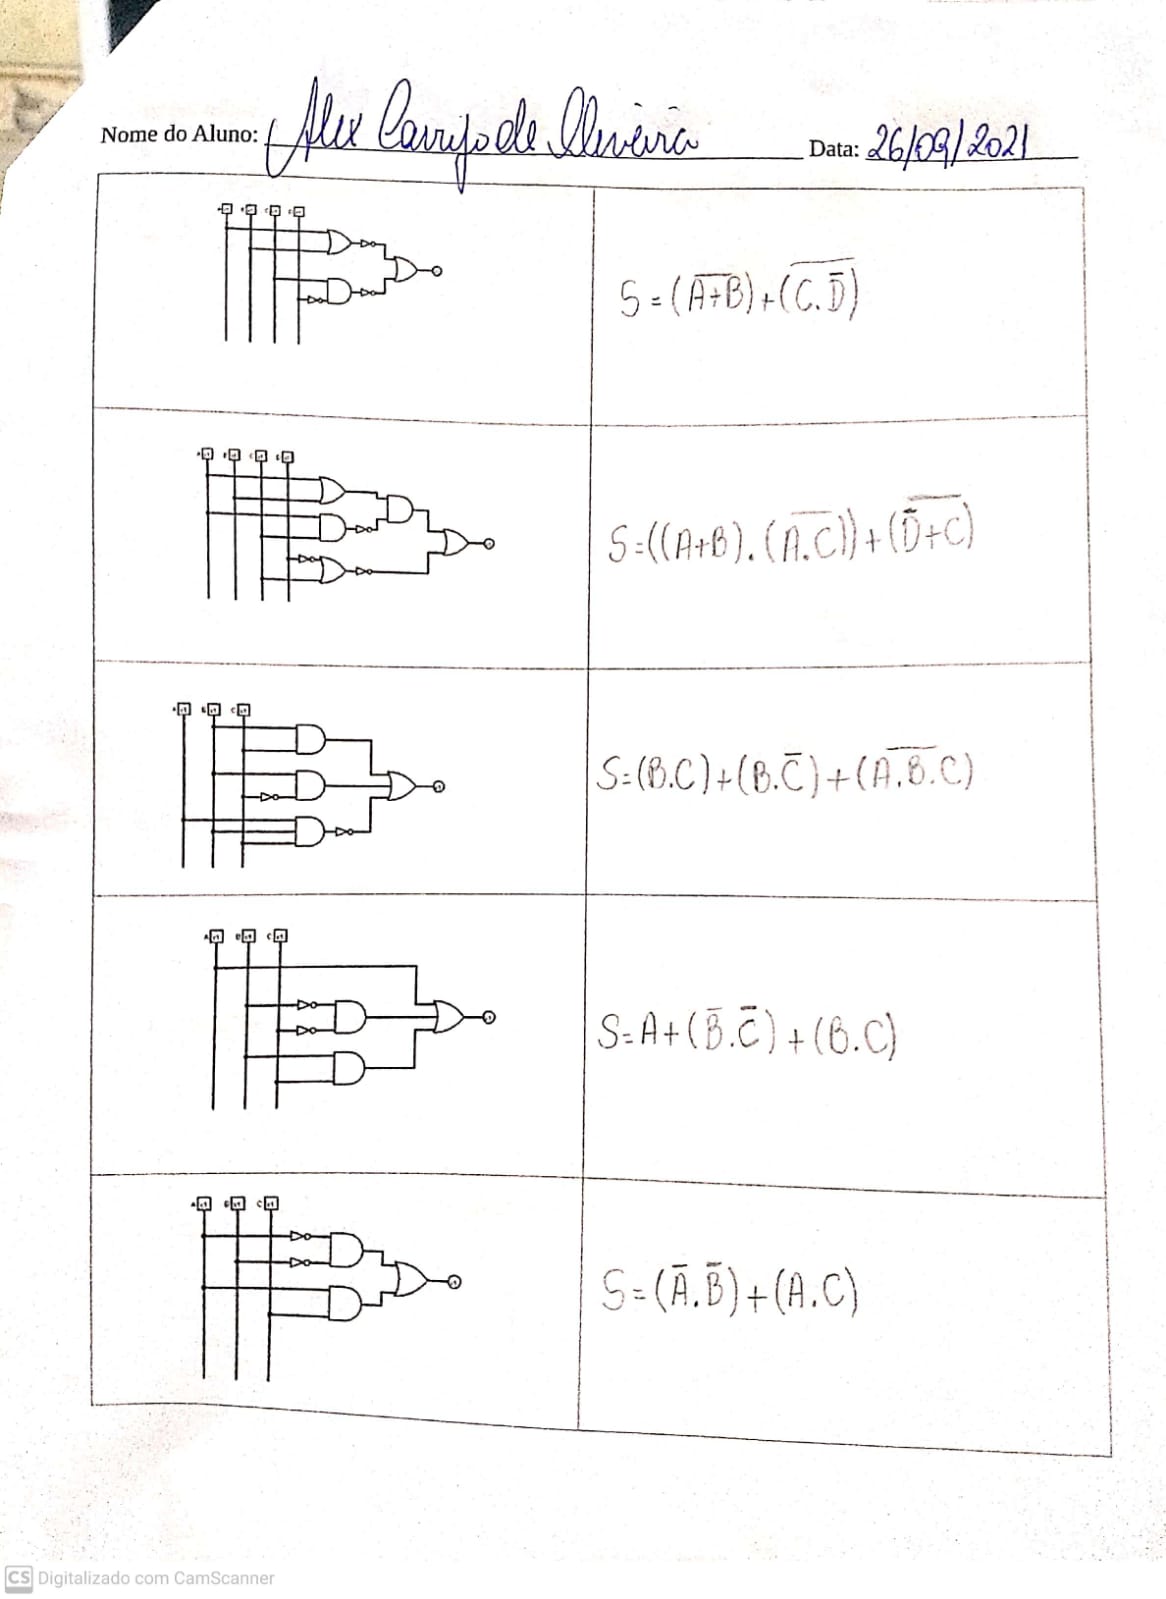 Nome do Aluno: Alex Carrijo de Oliveira Data: 26/09/2021
S = (A̅+̅B̅) + (C̅.̅D̅̅)
S = ((A+B).(A̅.̅C̅)) + (D̅̅+̅C̅)
A B C
S = (B.C) + (B.C̅) + (A̅.̅B̅.̅C̅)
A B C
S = A + (B̅.C̅) + (B.C)
A B C
S = (A̅.B̅) + (A.C)
CS Digitalizado com CamScanner